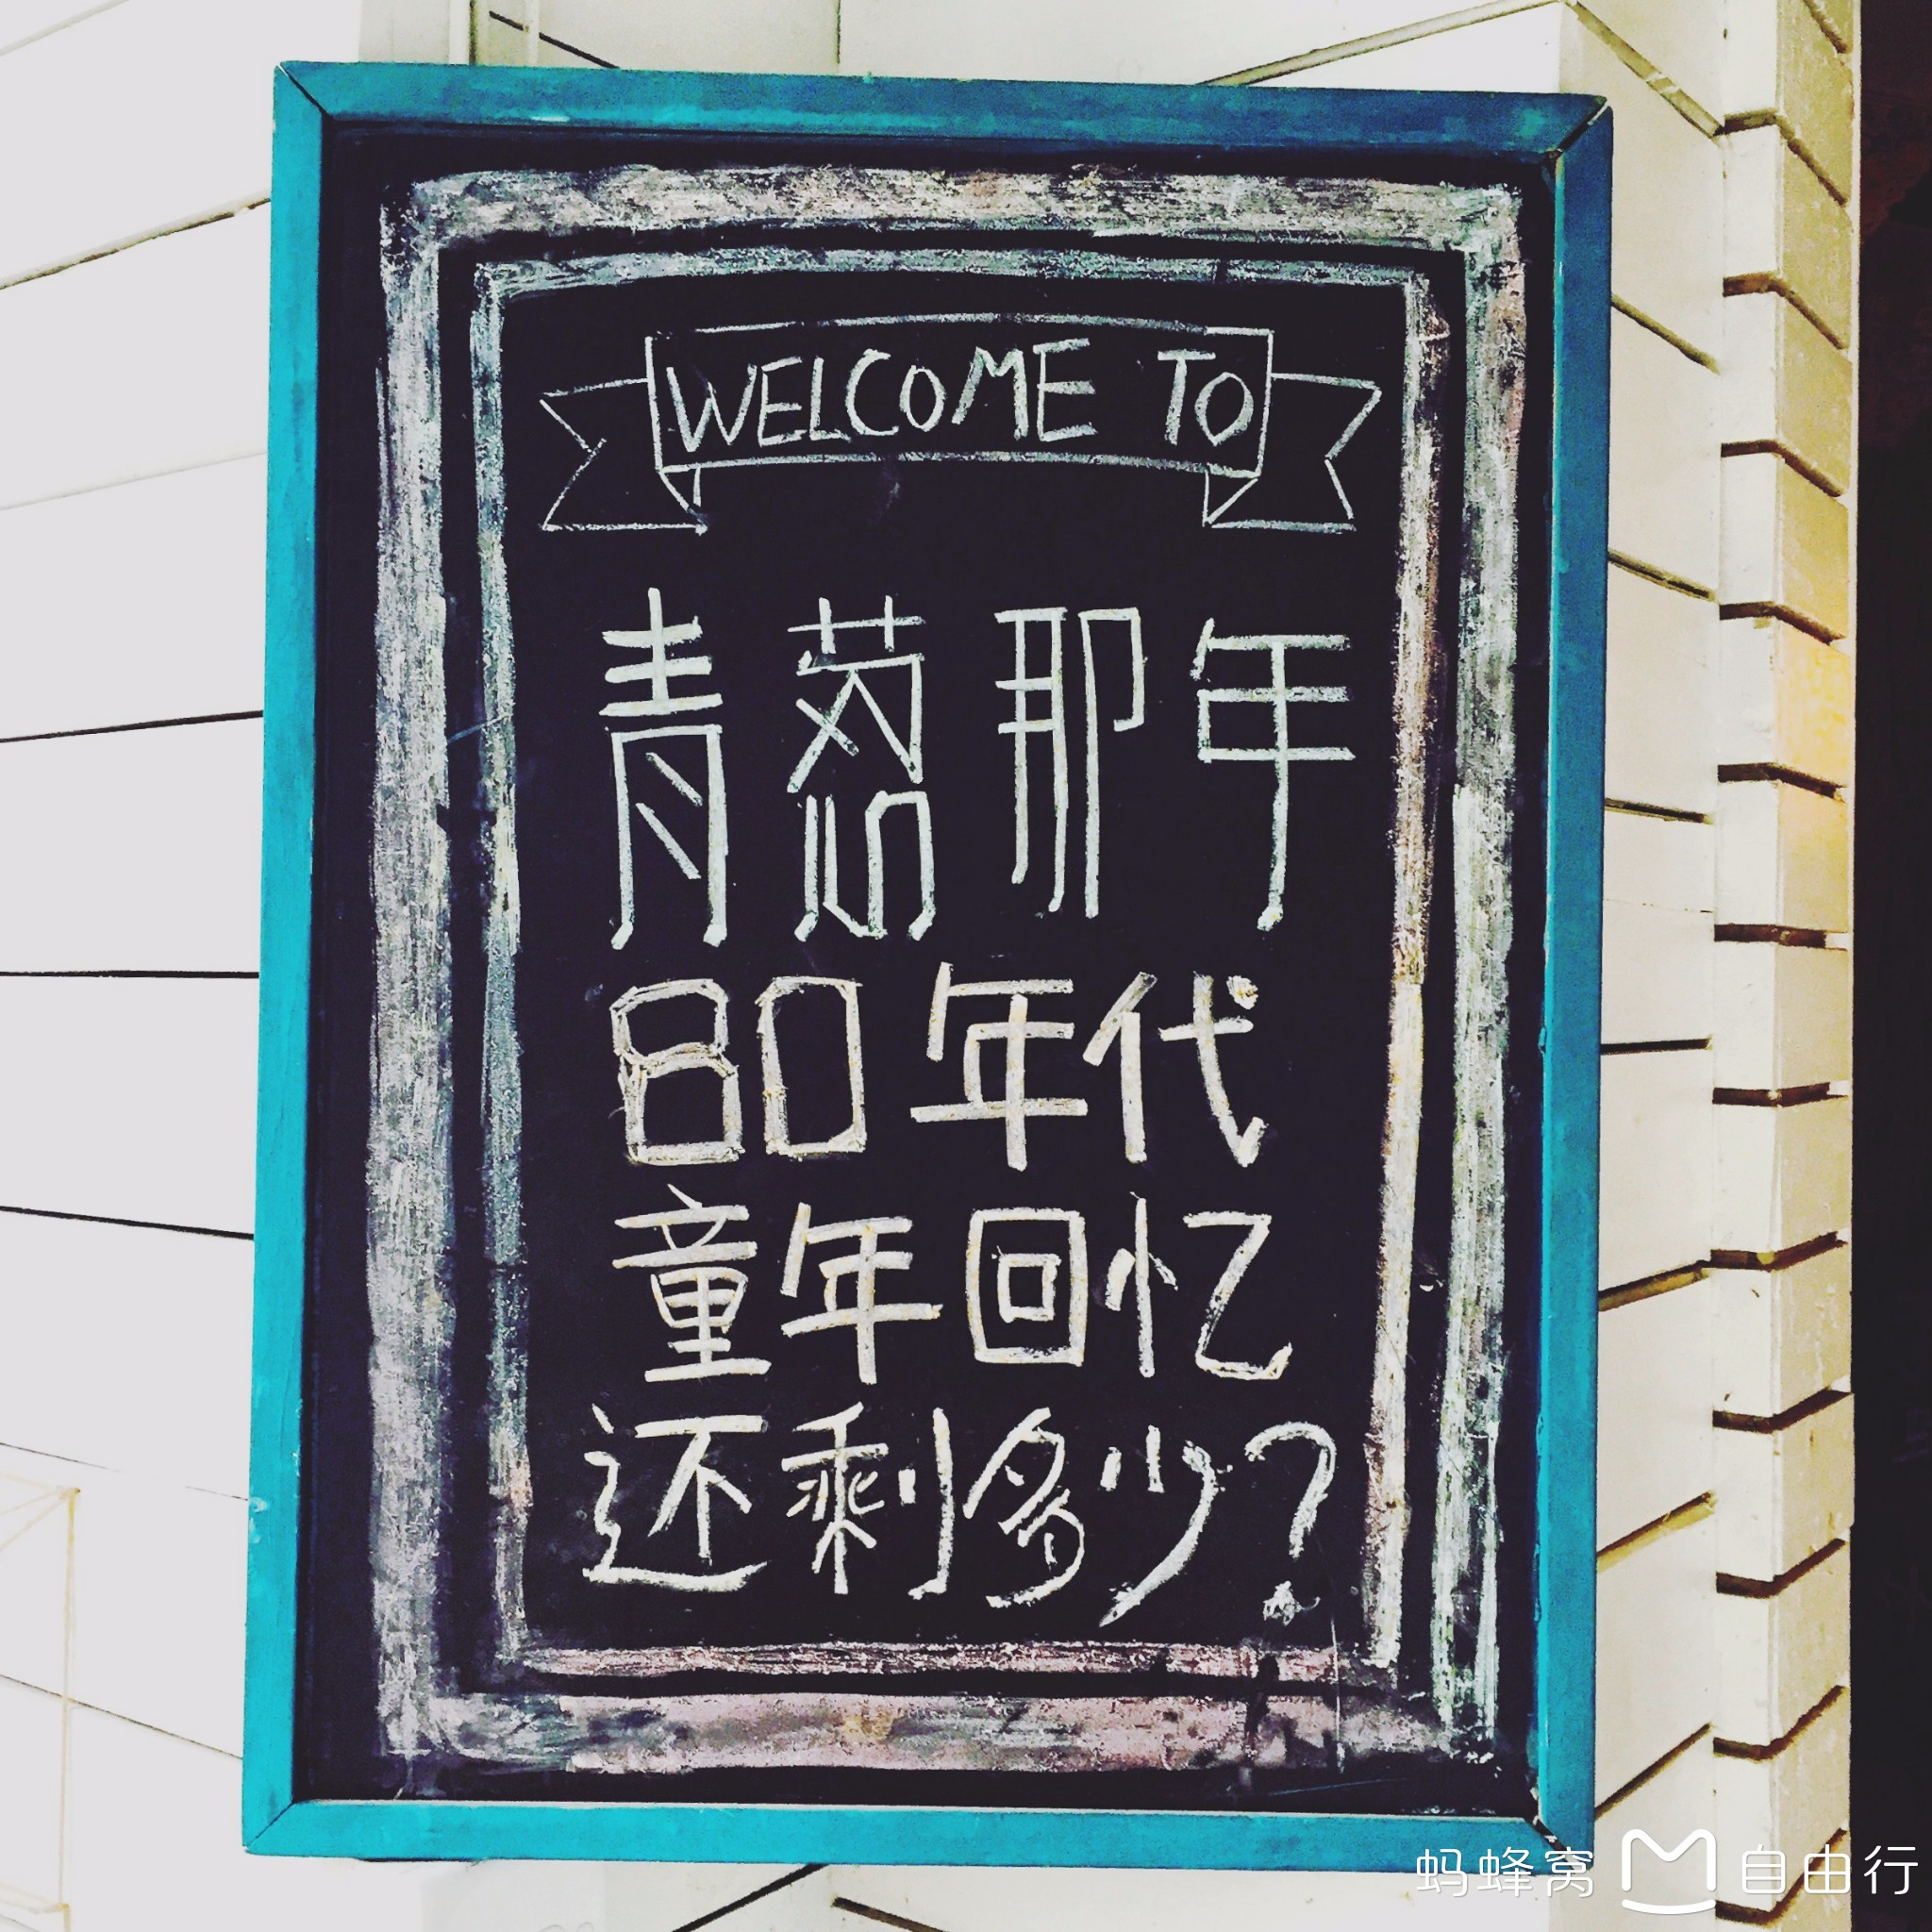 WELCOME TO
青葱那年
80年代
童年回忆
还剩多少?
蚂蜂窝 自由行